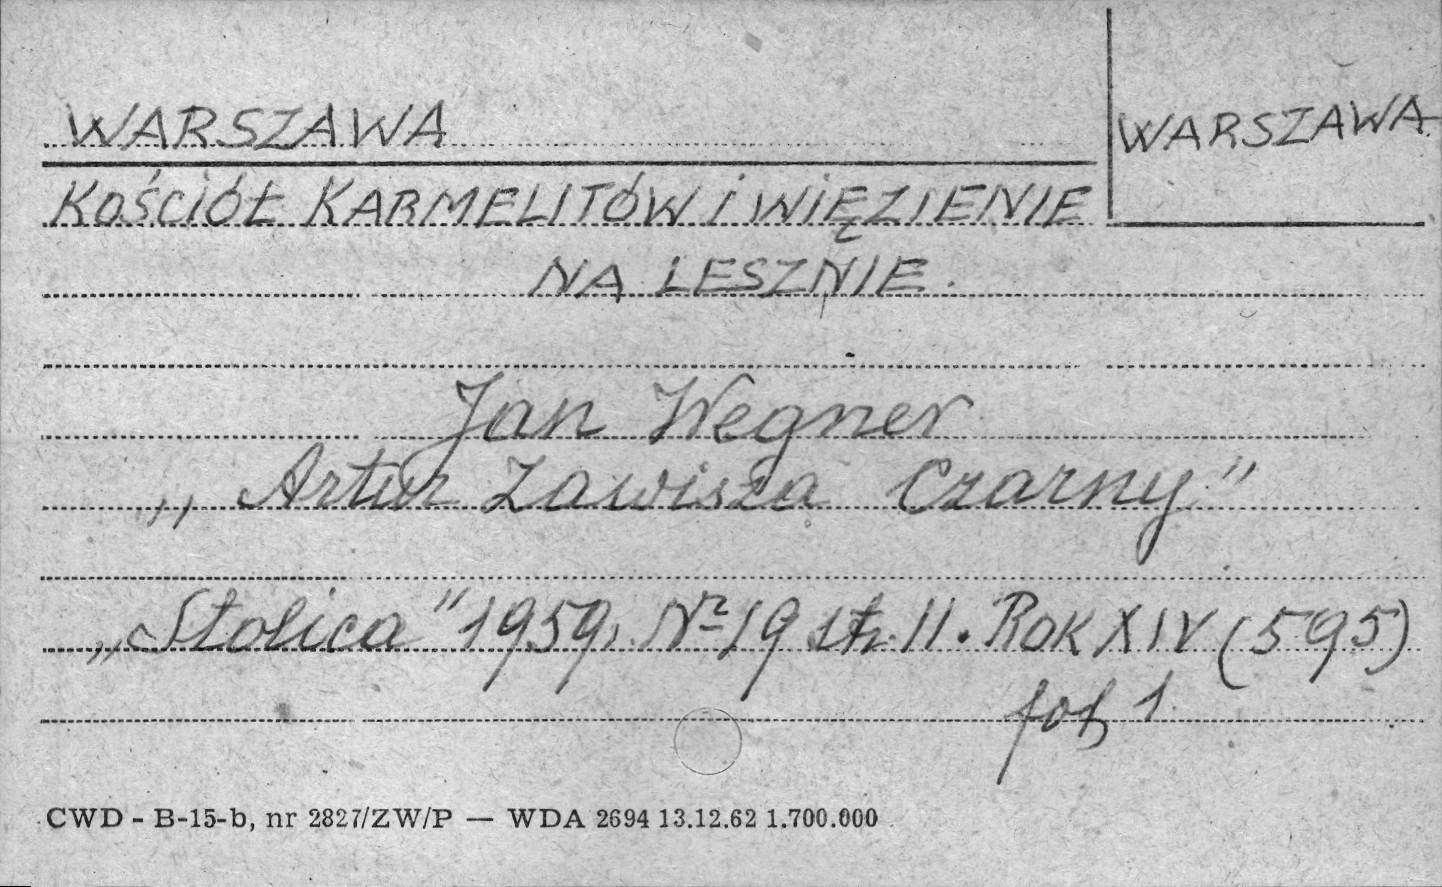 WARSZAWA
WARSZAWA
KOŚCIÓŁ KARMELITÓW i WIĘZIENIE
NA LESZNIE.
Jan Wegner
„Artur Zawisza Czarny"
„Stolica" 1959, Nr 19 str. 11. ROK XIV (595)
fot 1
CWD - B-15-b, nr 2827/ZW/P — WDA 2694 13.12.62 1.700.000